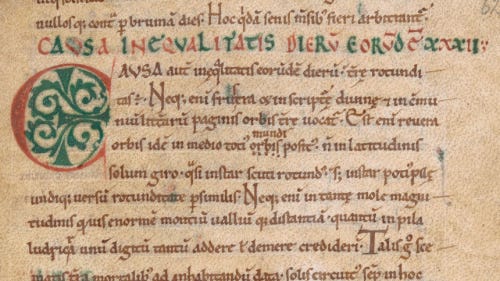 nullos que cont̄ p̄ brumā dies. Hoc q̇dā senis m̄sib; fieri arbitrant̄.
CAUSA INEQUALITATIS DIERŪ EORUNDĒ XXXII.
CAUSA aut̄ ineq̄litatis eorundē dierū. t̄re rotundi
tas ē. Neq; eni frustra & in scripturę divinę & in cōmu
niū litt̄arū paginis orbis t̄rre vocat̄. Est eni revera
orbis idē in medio toti᷒ orbis posit᷒. ñ in latitudinis
mundi
solum giro. q̄si instar scuti rotund᷒. s; instar poti᷒ pilę
undiq; versū rotunditate p̄similis. Neq; eni in tantę mole magni
tudinis q̄uis enormē montiū valliūq; distantiā. quantū in pila
ludicra unū digitū tantū addere l̄ demere crediderī. Talis g̊ sce
matis t̄ra mortalib᷒ ad inhabitandū data. solis circuit᷒ sep̄ in hoc